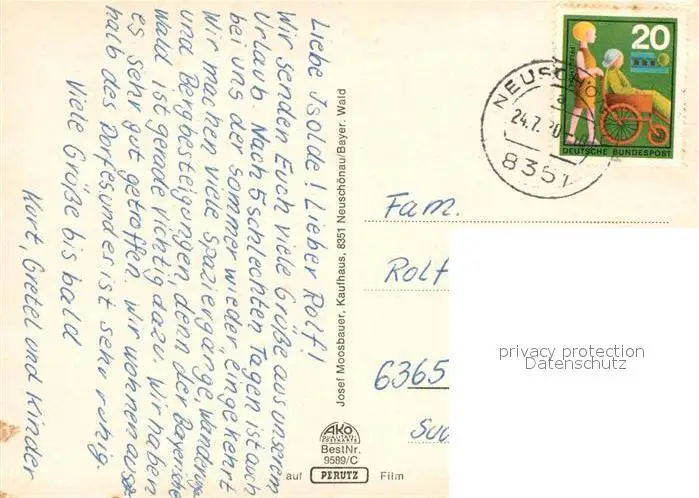 Liebe Isolde! Lieber Rolf!
Wir senden Euch viele Grüße aus unserem
Urlaub. Nach 5 schlechten Tagen ist auch
bei uns der Sommer wieder eingekehrt
Wir machen viele Spaziergänge, Wanderungen
und Bergbesteigungen, denn der Bayerische
Wald ist gerade richtig dazu. Wir haben
es sehr gut getroffen. Wir wohnen außer
halb des Dorfes und es ist sehr ruhig.
Viele Grüße bis bald
Kurt, Gretel und Kinder
Josef Moosbauer, Kaufhaus, 8351 Neuschönau/Bayer. Wald
AKO
BestNr.
9589/C
auf PERUTZ Film
20
DEUTSCHE BUNDESPOST
24.7.70
8351
Fam.
Rolf
6365
privacy protection
Datenschutz